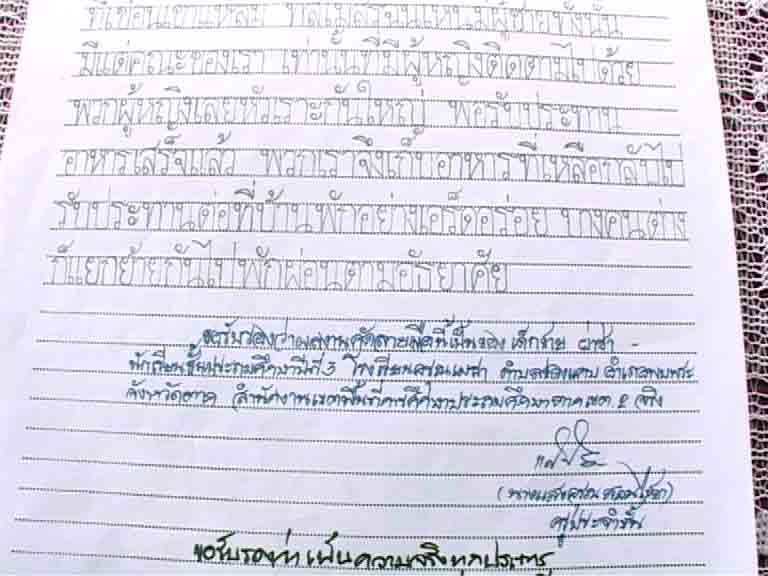 มีแต่คณะของเรา เท่านั้นที่มีผู้หญิงติดตามไปด้วย
พวกผู้หญิงเลยหัวเราะกันใหญ่ พอรับประทาน
อาหารเสร็จแล้ว พวกเราจึงเก็บอาหารที่เหลือกลับไป
รับประทานต่อที่บ้านพักอย่างเอร็ดอร่อย บางคนต่าง
ก็แยกย้ายกันไปพักผ่อนตามอัธยาศัย
ขอรับรองว่าผลงานคัดลายมือนี้เป็นของ เด็กชาย
นักเรียนชั้นประถมศึกษาปีที่ 3 โรงเรียน ตำบลช่องแคบ อำเภอพบพระ
จังหวัดตาก สำนักงานเขตพื้นที่การศึกษาประถมศึกษาตาก เขต 2 จริง
ครูประจำชั้น
ขอรับรองว่าเป็นความจริงทุกประการ